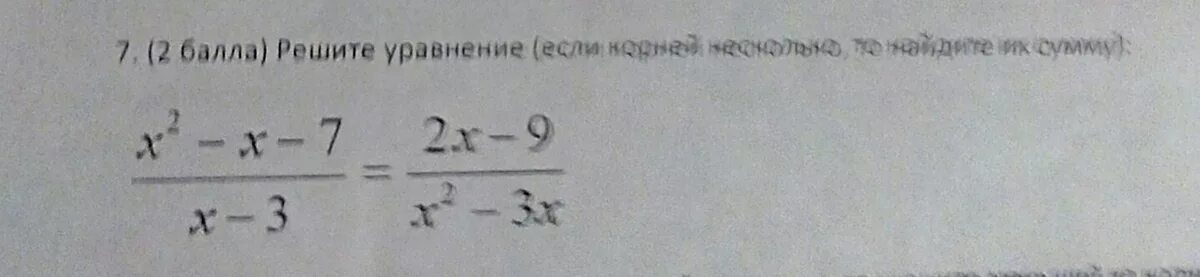 7. (2 балла) Решите уравнение (если корней несколько, то найдите их сумму):
x² − x − 7 / x − 3 = 2x − 9 / x² − 3x